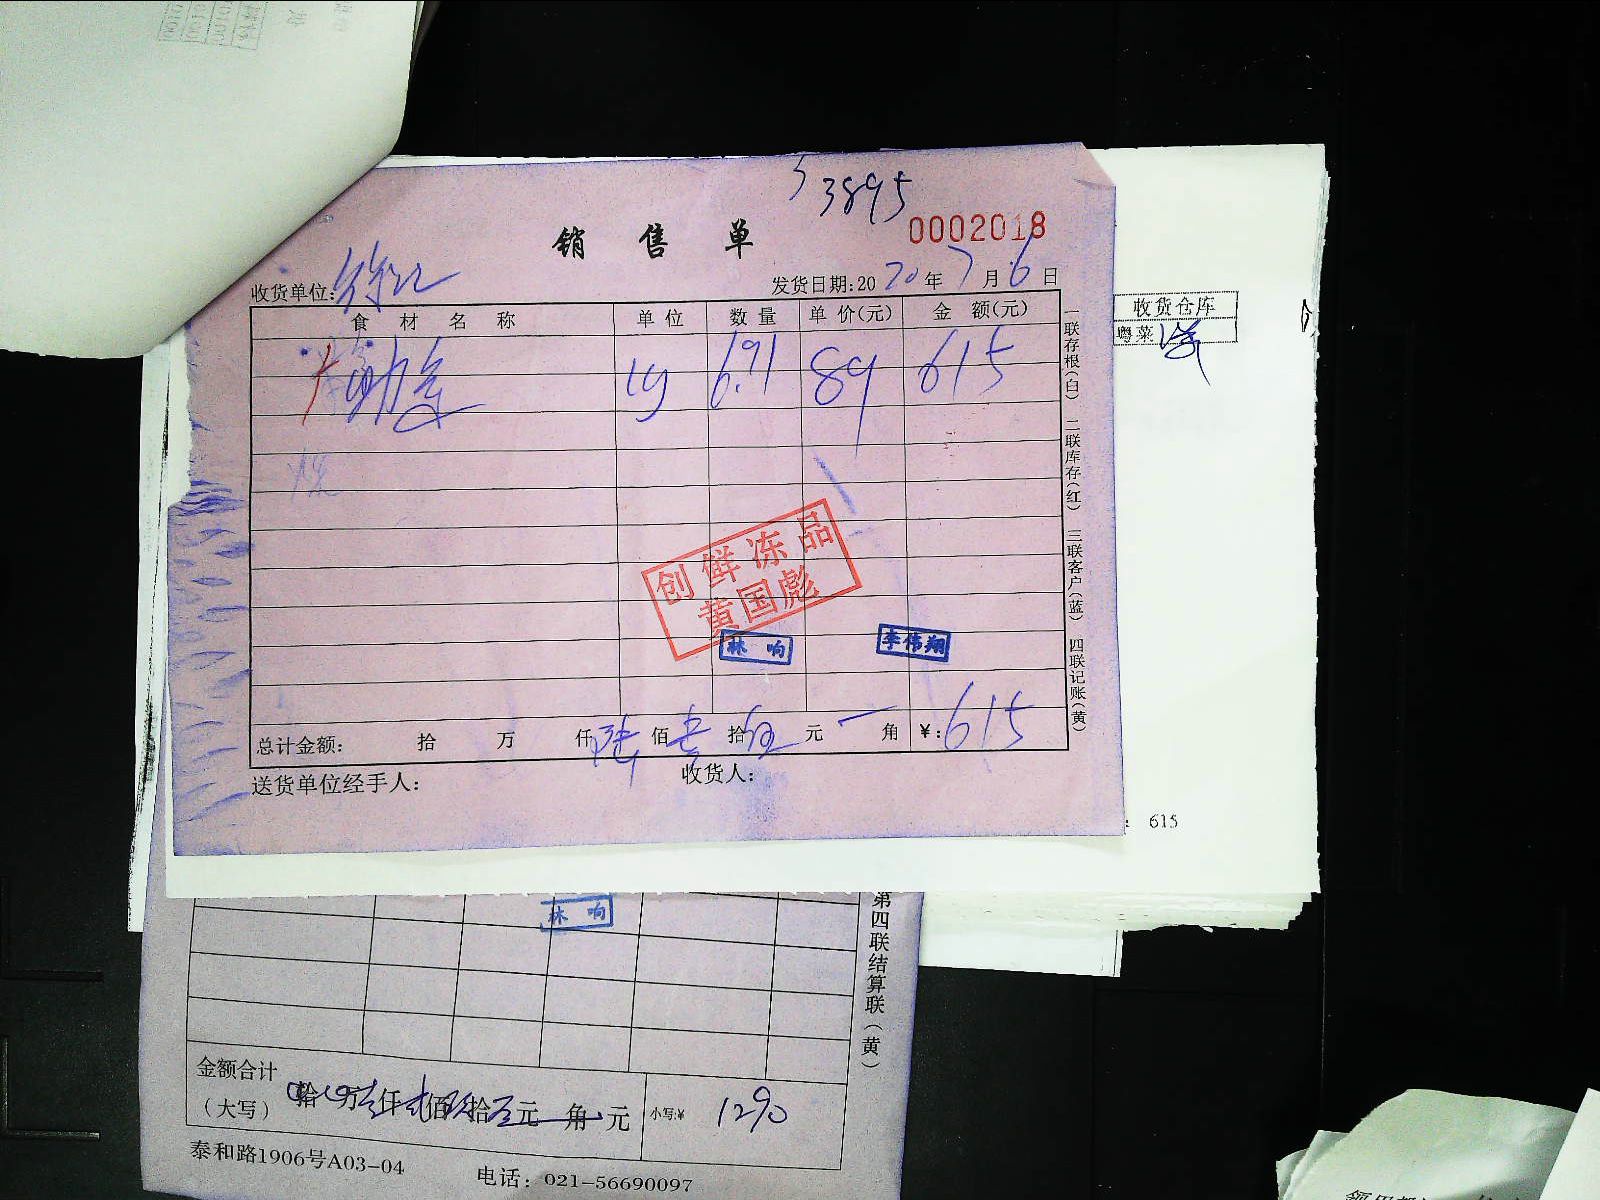 3895
销售单
0002018
收货单位:徐汇
发货日期:2020年7月6日
食材名称 单位 数量 单价(元) 金额(元)
6.91 89 615
创鲜冻品
黄国彪
林响
李伟翔
总计金额: 拾 万 仟陆佰壹拾伍元 角 ¥:615
送货单位经手人: 收货人:
一联存根(白) 二联库存(红) 三联客户(蓝) 四联记账(黄)
收货仓库
粤菜
615
林响
第四联结算联(黄)
金额合计
(大写) 拾 万 仟 佰 拾 元 角 元 小写:¥ 1290
泰和路1906号A03-04
电话: 021-56690097